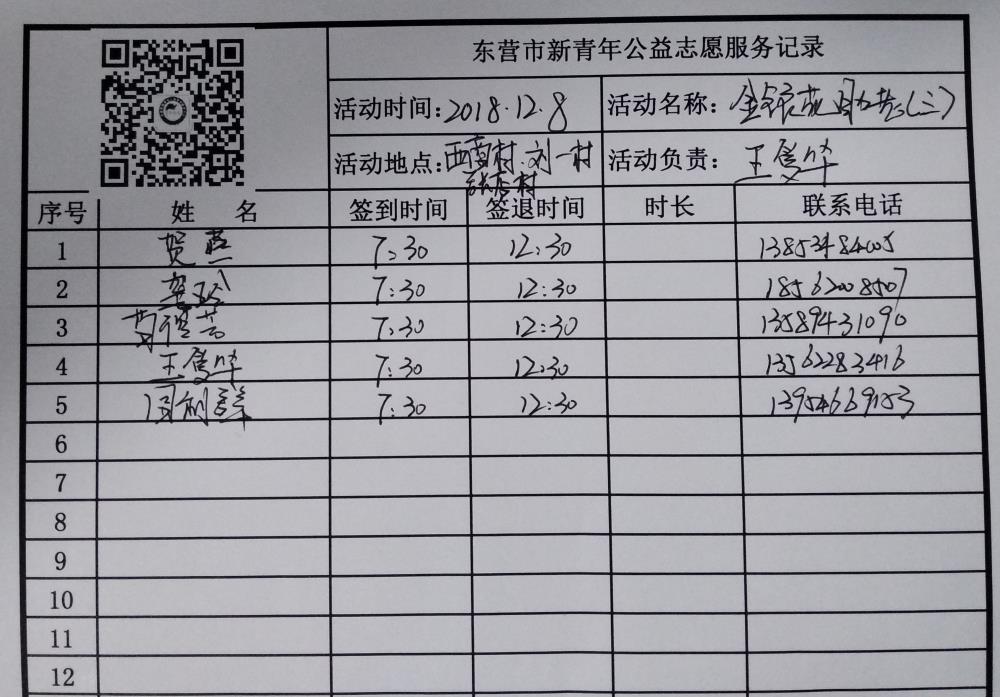 东营市新青年公益志愿服务记录
活动时间：2018.12.8 活动名称：
活动地点：西 村.刘一村 活动负责：王
村
序号 姓 名 签到时间 签退时间 时长 联系电话
1 贺燕 7:30 12:30 13853484005
2 7:30 12:30 18562008507
3 7:30 12:30 13589431090
4 王 7:30 12:30 13562283416
5 7:30 12:30 13954669153
6
7
8
9
10
11
12